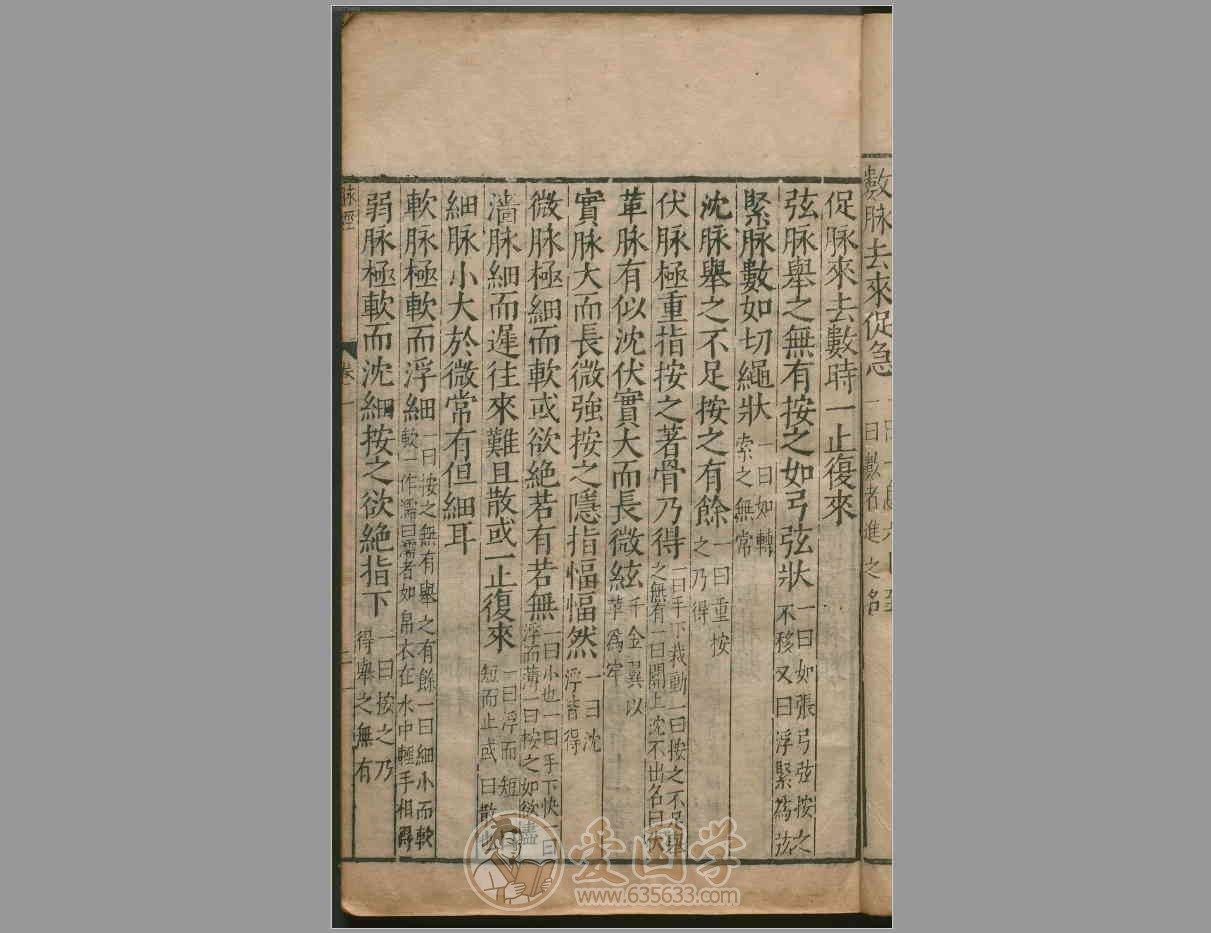 數脉去來促急一曰一息六七至一曰數者進之名
促脉來去數時一止復來
弦脉舉之無有按之如弓弦狀一曰如張弓弦按之不移又曰浮緊爲弦
緊脉數如切繩狀一曰如轉索之無常
沈脉舉之不足按之有餘一曰重按之乃得
伏脉極重指按之著骨乃得一曰手下裁動一曰按之不足舉之無有一曰關上沈不出名曰伏
革脉有似沈伏實大而長微絃千金翼以革爲牢
實脉大而長微強按之隱指愊愊然一曰沈浮皆得
微脉極細而軟或欲絶若有若無一曰小也一曰手下快一曰浮而薄一曰按之如欲盡
濇脉細而遲往來難且散或一止復來一曰浮而短一曰短而止或曰散也
細脉小大於微常有但細耳
軟脉極軟而浮細一曰按之無有舉之有餘一曰細小而軟軟一作濡曰濡者如帛衣在水中輕手相得
弱脉極軟而沈細按之欲絶指下一曰按之乃得舉之無有
脉經
卷一
爱国学
www.635633.com